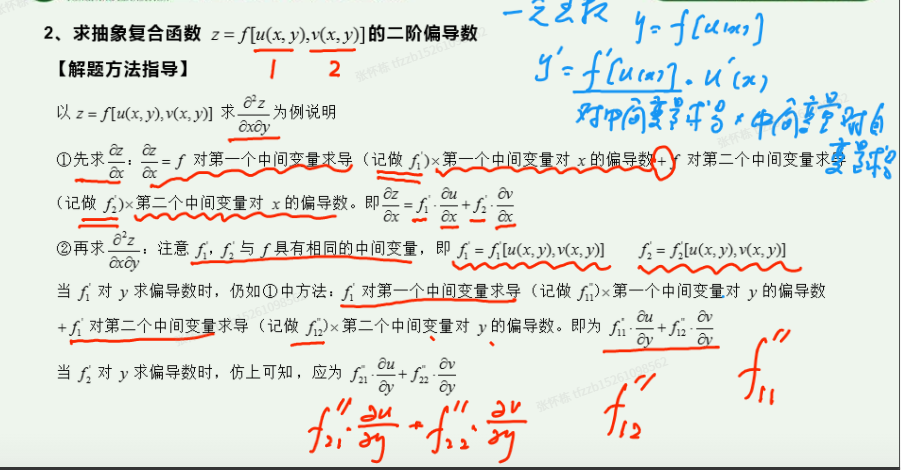 一元函数 y=f[u(x)]
y'=f'[u(x)]·u'(x)
对中间变量求导*中间变量对自
变量求导
2、求抽象复合函数 z=f[u(x,y),v(x,y)]的二阶偏导数
1 2
【解题方法指导】
以 z=f[u(x,y),v(x,y)] 求 ∂²z/∂x∂y 为例说明
①先求 ∂z/∂x：∂z/∂x = f 对第一个中间变量求导（记做 f₁'）×第一个中间变量对 x 的偏导数+f 对第二个中间变量求导
（记做 f₂'）×第二个中间变量对 x 的偏导数。即 ∂z/∂x = f₁'·∂u/∂x + f₂'·∂v/∂x
②再求 ∂²z/∂x∂y：注意 f₁', f₂' 与 f 具有相同的中间变量，即 f₁'=f₁'[u(x,y),v(x,y)] f₂'=f₂'[u(x,y),v(x,y)]
当 f₁' 对 y 求偏导数时，仍如①中方法：f₁' 对第一个中间变量求导（记做 f₁₁''）×第一个中间变量对 y 的偏导数
+f₁' 对第二个中间变量求导（记做 f₁₂''）×第二个中间变量对 y 的偏导数。即为 f₁₁''·∂u/∂y + f₁₂''·∂v/∂y
当 f₂' 对 y 求偏导数时，仿上可知，应为 f₂₁''·∂u/∂y + f₂₂''·∂v/∂y
f₁₁''
f₁₂''
f₂₁''·∂u/∂y + f₂₂''·∂v/∂y